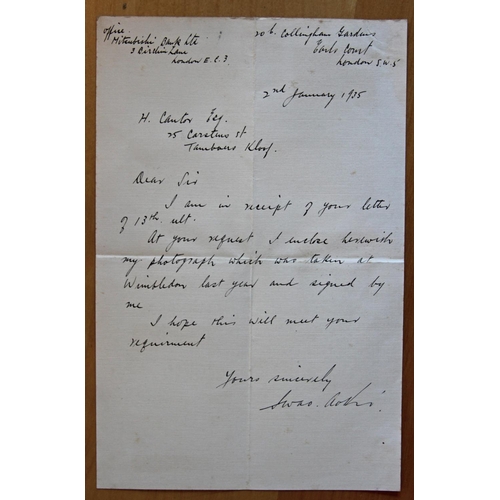 office
Mitsubishi Bank Ltd
3 Birchin Lane
London E.C.3.
20b. Collingham Gardens
Earls Court
London S.W.5
2nd January 1935
H. Cantor Esq.
25 Carstens St
Tambours Kloof.
Dear Sir
I am in receipt of your letter
of 13th ult.
At your request I enclose herewish
my photograph which was taken at
Wimbledon last year and signed by
me
I hope this will meet your
requirment
Yours sincerely
Iwao. Aoki.